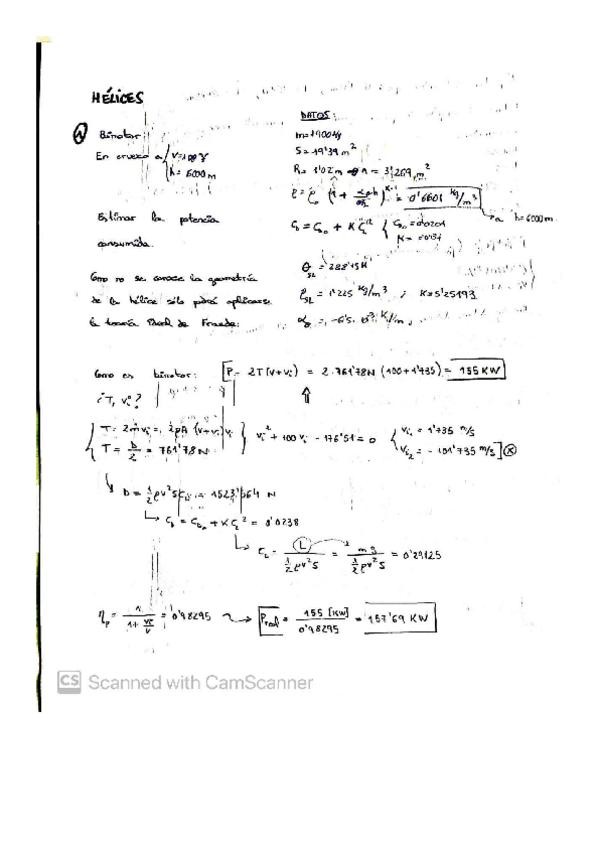 HÉLICES
① Birrotor:
En crucero a { V=100 m/s
h = 6000 m
Estimar la potencia
consumida.
Como no se conoce la geometría
de la hélice sólo podré aplicarse
la teoría Ideal de Froude:
DATOS:
m=1900 kg
S = 19'39 m²
R = 1'02 m → A = 3'269 m²
= 0'6601 kg/m³
→ a h=6000m
C_D = C_D0 + K C_L² { C_D0 = 0'0201
θ_SL = 288'15 K
ρ_SL = 1'225 kg/m³ ; K=5'25193
α_θ = -6'5·10⁻³ K/m
Como es birrotor: P = 2T(V+Vi) = 2·761'78N (100+1'735) = 155 KW
⇑
¿T, Vi?
{ T = 2ṁVi = 2ρA (V+Vi)Vi
T = D/2 = 761'78N } Vi² + 100 Vi - 176'51 = 0 { Vi1 = 1'735 m/s
Vi2 = -101'735 m/s ] ⊗
D = 1/2 ρV²S C_D = 1523'564 N
C_D = C_D0 + K C_L² = 0'0238
C_L = L / (1/2 ρV²S) = mg / (1/2 ρV²S) = 0'29125
η_p = 1 / (1 + Vi/V) = 0'98295 → P_real = 155 [KW] / 0'98295 = 157'69 KW
CS Scanned with CamScanner